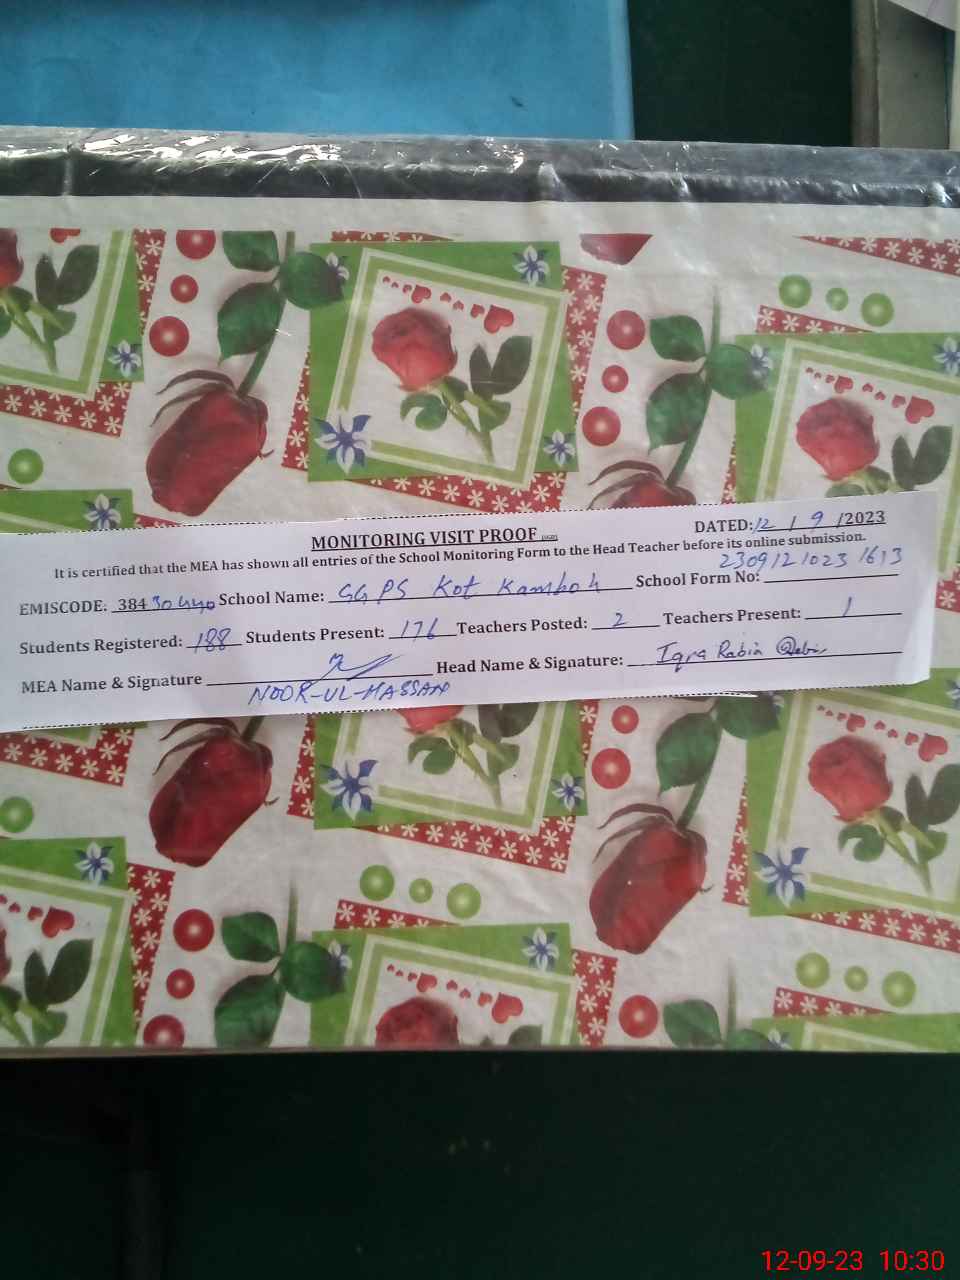 MONITORING VISIT PROOF
DATED: 12 / 9 /2023
It is certified that the MEA has shown all entries of the School Monitoring Form to the Head Teacher before its online submission.
EMISCODE: 38430440 School Name: GGPS Kot Kamboh School Form No: 230912 1023 1613
Students Registered: 188 Students Present: 176 Teachers Posted: 2 Teachers Present: 1
MEA Name & Signature NOOR-UL-HASSAN Head Name & Signature: Iqra Rabia
12-09-23 10:30